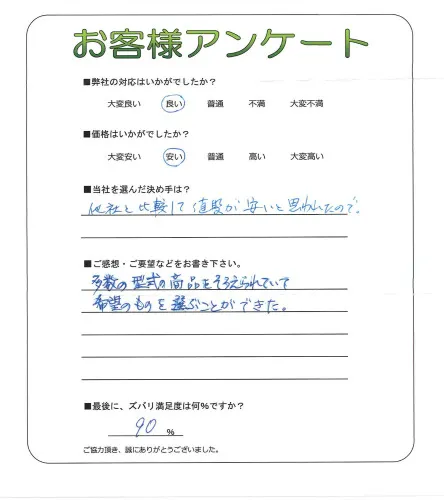 お客様アンケート
■弊社の対応はいかがでしたか？
大変良い 良い 普通 不満 大変不満
■価格はいかがでしたか？
大変安い 安い 普通 高い 大変高い
■当社を選んだ決め手は？
他社と比較して値段が安いと思われたので。
■ご感想・ご要望などをお書き下さい。
多数の型式の商品をそろえられていて
希望のものを選ぶことができた。
■最後に、ズバリ満足度は何％ですか？
90 ％
ご協力頂き、誠にありがとうございました。